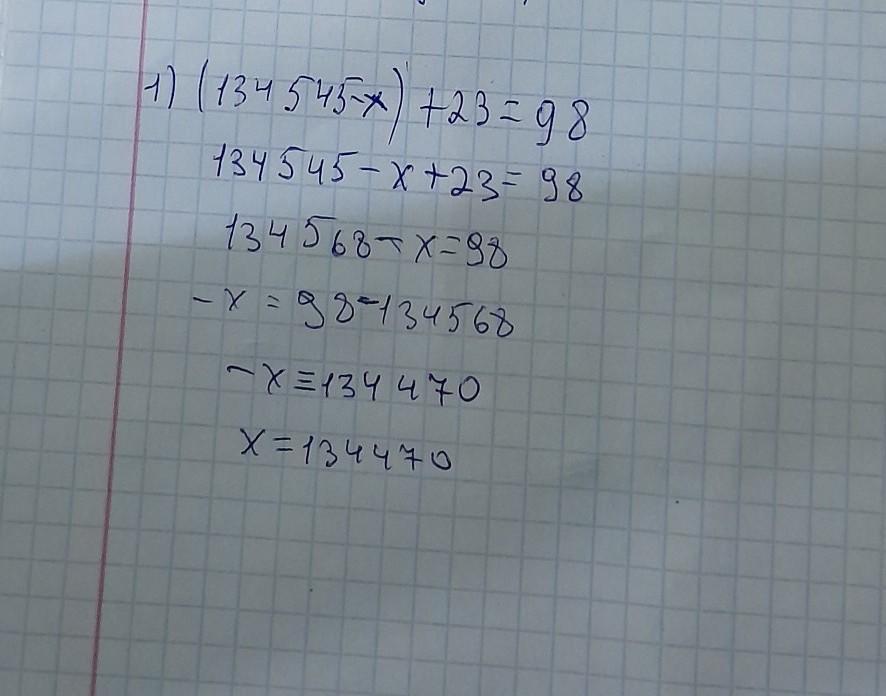 1) (134545-x) +23=98
134545-x+23=98
134568-x=98
-x=98-134568
-x=-134470
x=134470